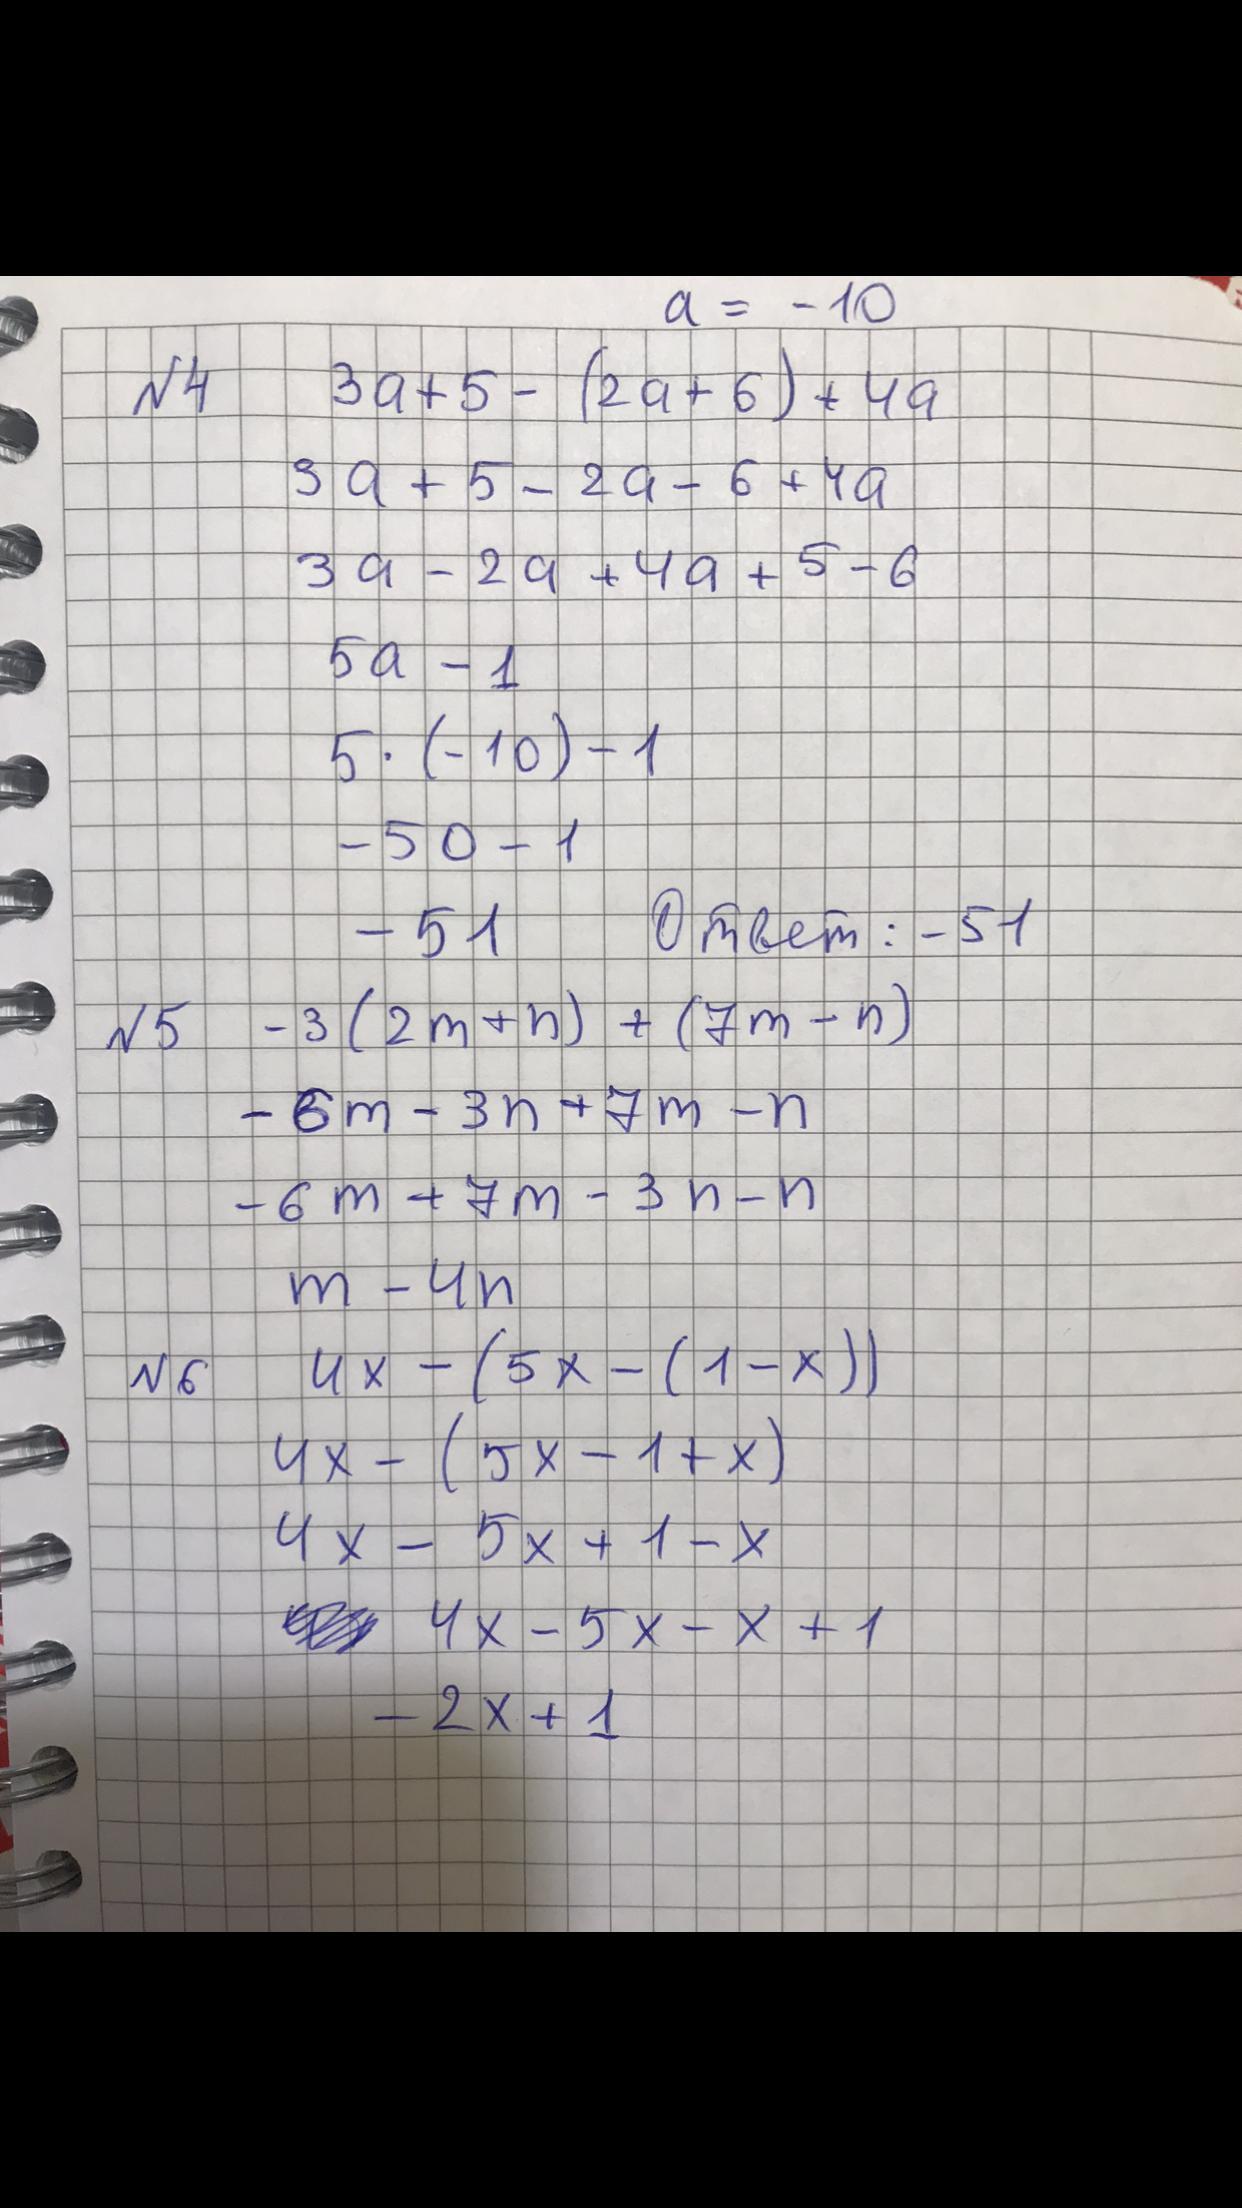 a = -10
№4 3a+5-(2a+6)+4a
3a+5-2a-6+4a
3a-2a+4a+5-6
5a-1
5·(-10)-1
-50-1
-51 Ответ: -51
№5 -3(2m+n)+(7m-n)
-6m-3n+7m-n
-6m+7m-3n-n
m-4n
№6 4x-(5x-(1-x))
4x-(5x-1+x)
4x-5x+1-x
4x-5x-x+1
-2x+1